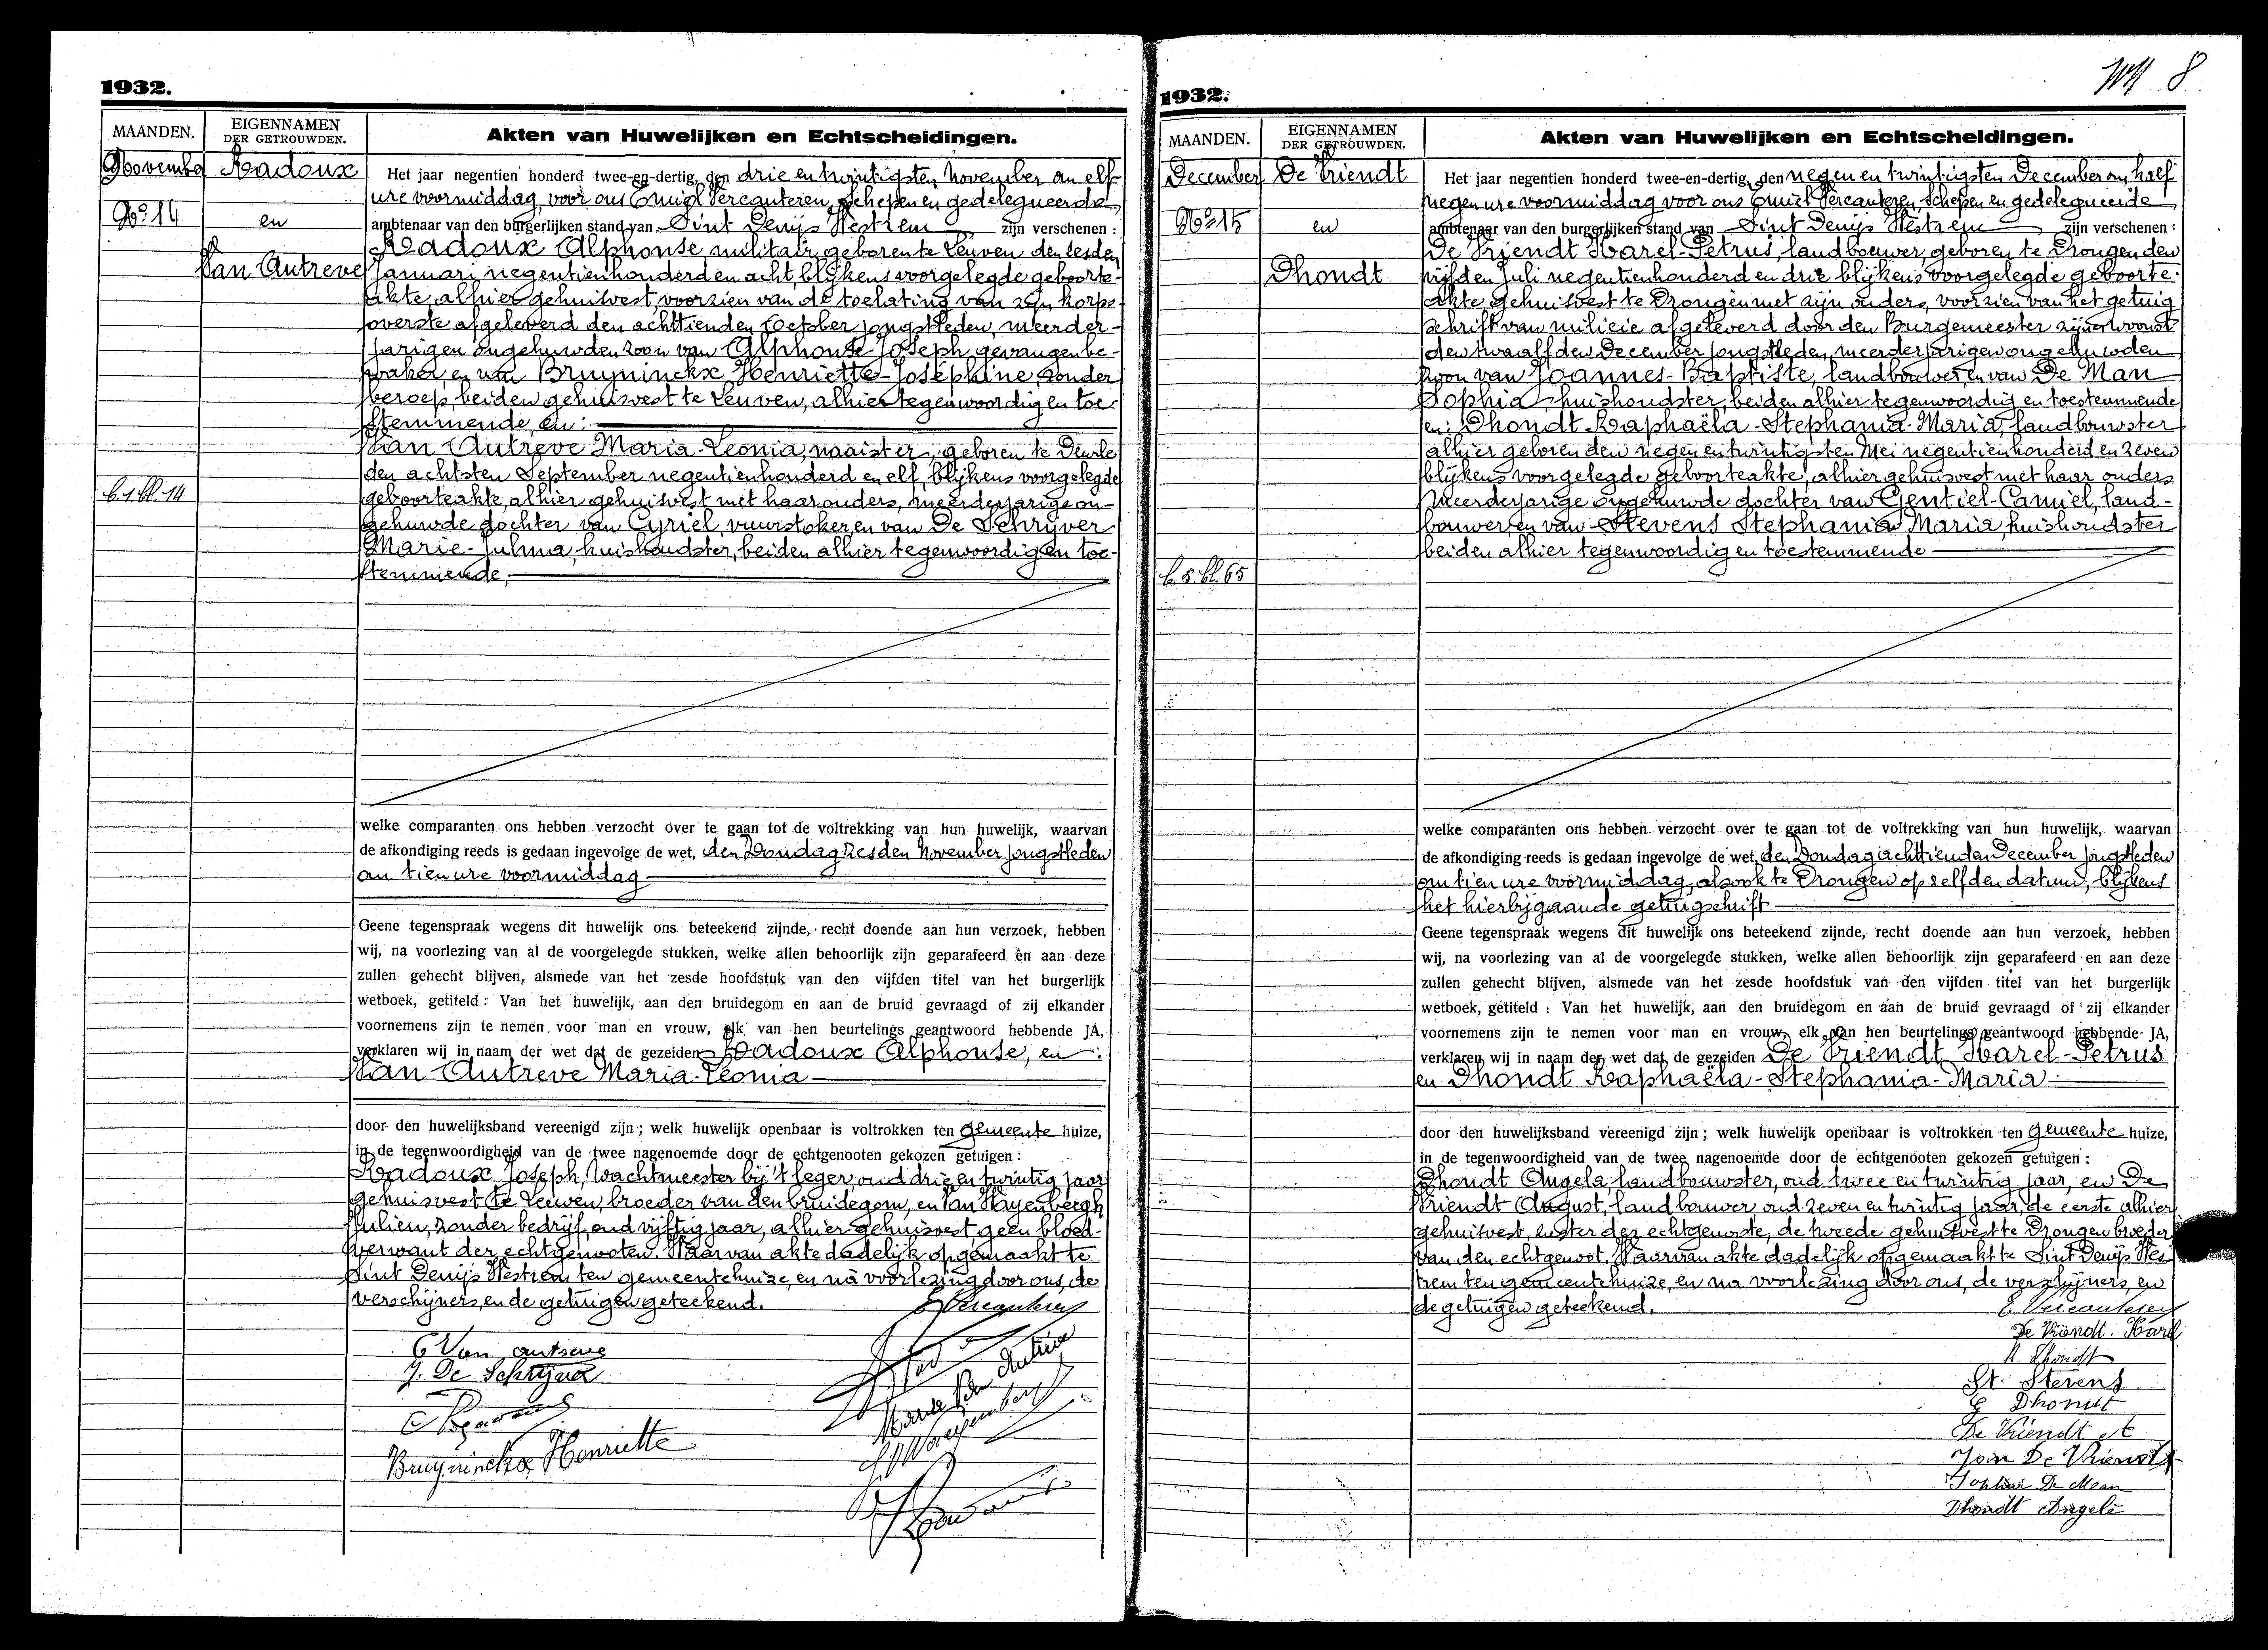 1932.
MAANDEN.
EIGENNAMEN
DER GETROUWDEN.
Akten van Huwelijken en Echtscheidingen.
November
Radoux
No 14
en
Van Autreve
b.1.bl.14
Het jaar negentien honderd twee-en-dertig, den drie en twintigsten November om elf
ure voormiddag, voor ons Emiel Vercauteren, schepen en gedelegueerde
ambtenaar van den burgerlijken stand van Sint Denijs Westrem zijn verschenen :
Radoux Alphonse, militair, geboren te Leuven den zesden
Januari negentienhonderd en acht, blijkens voorgelegde geboorte-
akte, alhier gehuisvest, voorzien van de toelating van zijn korps-
overste afgeleverd den achttienden October jongstleden, meerder-
jarigen ongehuwden zoon van Alphonse Joseph, gevangenbe-
waker, en van Bruyninckx Henriette-Josephine, zonder
beroep, beiden gehuisvest te Leuven, alhier tegenwoordig en toe-
stemmende, en :
Van Autreve Maria-Leonia, naaister, geboren te Deurle
den achtsten September negentienhonderd en elf, blijkens voorgelegde
geboorteakte, alhier gehuisvest met haar ouders, meerderjarige on-
gehuwde dochter van Cyriel, vuurstoker, en van De Schryver
Marie-Julma, huishoudster, beiden alhier tegenwoordig en toe-
stemmende,
welke comparanten ons hebben verzocht over te gaan tot de voltrekking van hun huwelijk, waarvan
de afkondiging reeds is gedaan ingevolge de wet, den Zondag zesden November jongstleden
om tien ure voormiddag
Geene tegenspraak wegens dit huwelijk ons beteekend zijnde, recht doende aan hun verzoek, hebben
wij, na voorlezing van al de voorgelegde stukken, welke allen behoorlijk zijn geparafeerd èn aan deze
zullen gehecht blijven, alsmede van het zesde hoofdstuk van den vijfden titel van het burgerlijk
wetboek, getiteld : Van het huwelijk, aan den bruidegom en aan de bruid gevraagd of zij elkander
voornemens zijn te nemen voor man en vrouw, elk van hen beurtelings geantwoord hebbende JA,
verklaren wij in naam der wet dat de gezeiden Radoux Alphonse, en :
Van Autreve Maria-Leonia
door den huwelijksband vereenigd zijn ; welk huwelijk openbaar is voltrokken ten gemeente huize,
in de tegenwoordigheid van de twee nagenoemde door de echtgenooten gekozen getuigen :
Radoux Joseph, Wachtmeester bij 't leger, oud drie en twintig jaar
gehuisvest te Leuven, broeder van den bruidegom, en Van Wayenbergh
Julien, zonder bedrijf, oud vijftig jaar, alhier gehuisvest, geen bloed-
verwant der echtgenooten. Waarvan akte dadelijk opgemaakt te
Sint Denijs Westrem ten gemeentehuize, en na voorlezing door ons, de
verschijners, en de getuigen geteekend.
E Vercauteren
C Van autreve
J. De Schryver
Bruyninckx Henriette
Maria Van Autreve
1932.
8
MAANDEN.
EIGENNAMEN
DER GETROUWDEN.
Akten van Huwelijken en Echtscheidingen.
December
De Vriendt
No 15
en
Dhondt
b.5.bl.65
Het jaar negentien honderd twee-en-dertig, den negen en twintigsten December om half
negen ure voormiddag voor ons Emiel Vercauteren, schepen en gedelegueerde
ambtenaar van den burgerlijken stand van Sint Denijs Westrem zijn verschenen :
De Vriendt Karel-Petrus, landbouwer, geboren te Drongen den
vijfden Juli negentienhonderd en drie blijkens voorgelegde geboorte-
akte, gehuisvest te Drongen met zijn ouders, voorzien van het getuig
schrift van milicie afgeleverd door den Burgemeester zijner woonst
den twaalfden December jongstleden, meerderjarigen ongehuwden
zoon van Joannes-Baptiste, landbouwer, en van De Man
Sophia, huishoudster, beiden alhier tegenwoordig en toestemmende
en : Dhondt Raphaëla-Stephania-Maria, landbouwster
alhier geboren den negen en twintigsten Mei negentienhonderd en zeven
blijkens voorgelegde geboorteakte, alhier gehuisvest met haar ouders
meerderjarige ongehuwde dochter van Gentiel-Camiel, land-
bouwer, en van Stevens Stephania Maria, huishoudster
beiden alhier tegenwoordig en toestemmende
welke comparanten ons hebben verzocht over te gaan tot de voltrekking van hun huwelijk, waarvan
de afkondiging reeds is gedaan ingevolge de wet, den Zondag achttienden December jongstleden
om tien ure voormiddag, alsook te Drongen op zelfden datum, blijkens
het hierbijgaande getuigschrift
Geene tegenspraak wegens dit huwelijk ons beteekend zijnde, recht doende aan hun verzoek, hebben
wij, na voorlezing van al de voorgelegde stukken, welke allen behoorlijk zijn geparafeerd en aan deze
zullen gehecht blijven, alsmede van het zesde hoofdstuk van den vijfden titel van het burgerlijk
wetboek, getiteld : Van het huwelijk, aan den bruidegom en aan de bruid gevraagd of zij elkander
voornemens zijn te nemen voor man en vrouw, elk van hen beurtelings geantwoord hebbende JA,
verklaren wij in naam der wet dat de gezeiden De Vriendt Karel-Petrus
en Dhondt Raphaëla-Stephania-Maria
door den huwelijksband vereenigd zijn ; welk huwelijk openbaar is voltrokken ten gemeente huize,
in de tegenwoordigheid van de twee nagenoemde door de echtgenooten gekozen getuigen :
Dhondt Angela, landbouwster, oud twee en twintig jaar, en De
Vriendt August, landbouwer oud zeven en twintig jaar, de eerste alhier
gehuisvest, zuster der echtgenoote, de tweede gehuisvest te Drongen broeder
van den echtgenoot. Waarvan akte dadelijk opgemaakt te Sint Denijs Wes
trem ten gemeentehuize, en na voorlezing door ons, de verschijners, en
de getuigen geteekend.
E Vercauteren
De Vriendt. Karel
R Dhondt
St. Stevens
G Dhondt
De Vriendt A
Join De Vriendt
Sophie De Man
Dhondt Angele